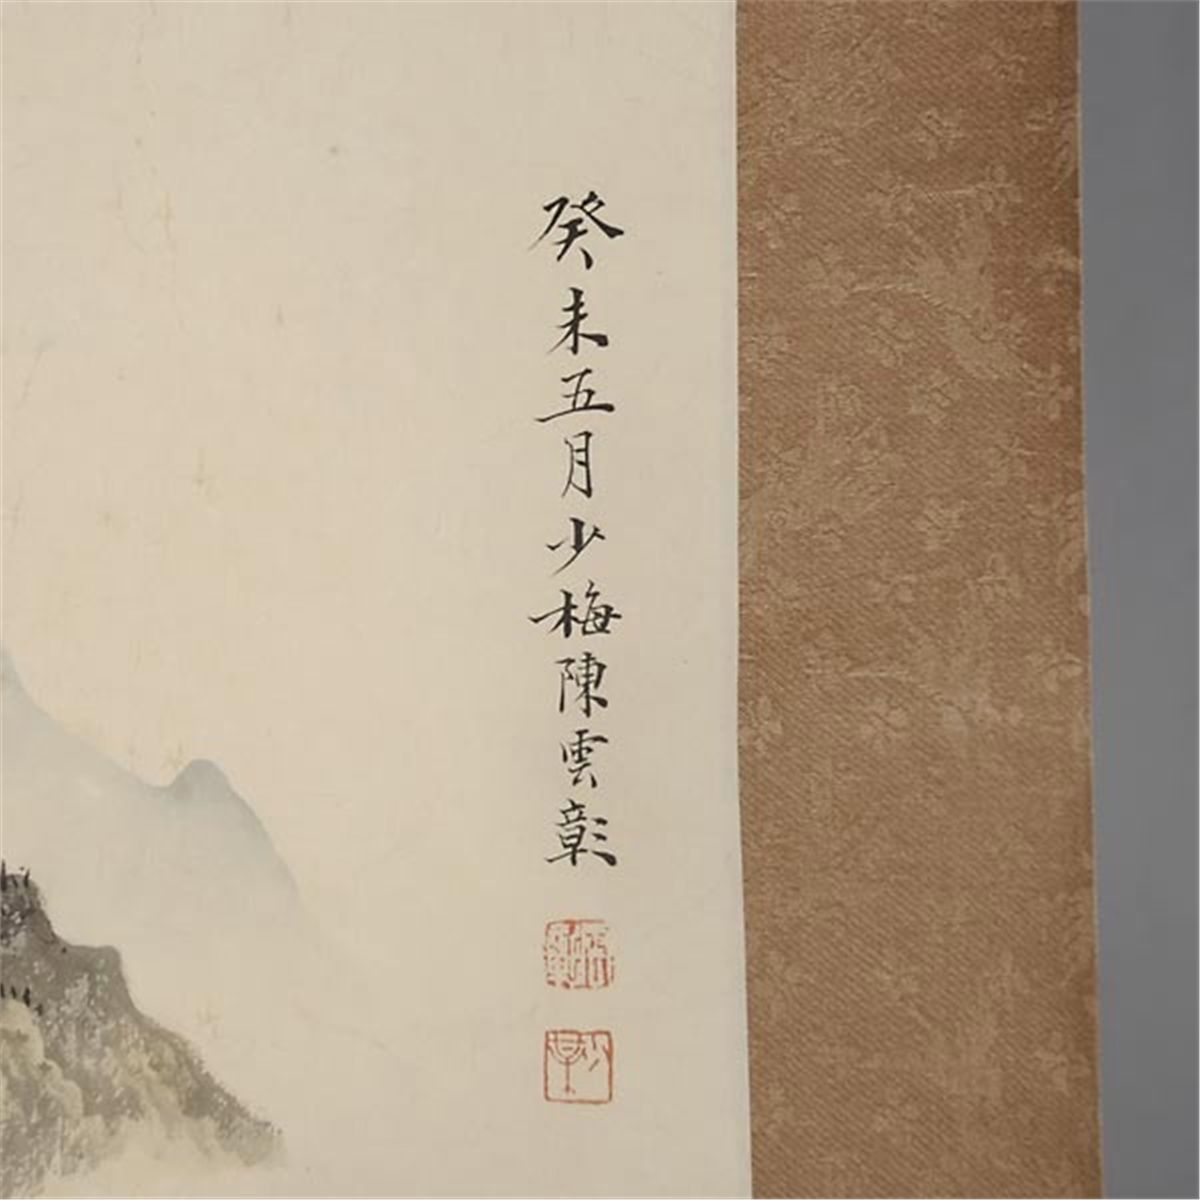 癸未五月少梅陳雲彰